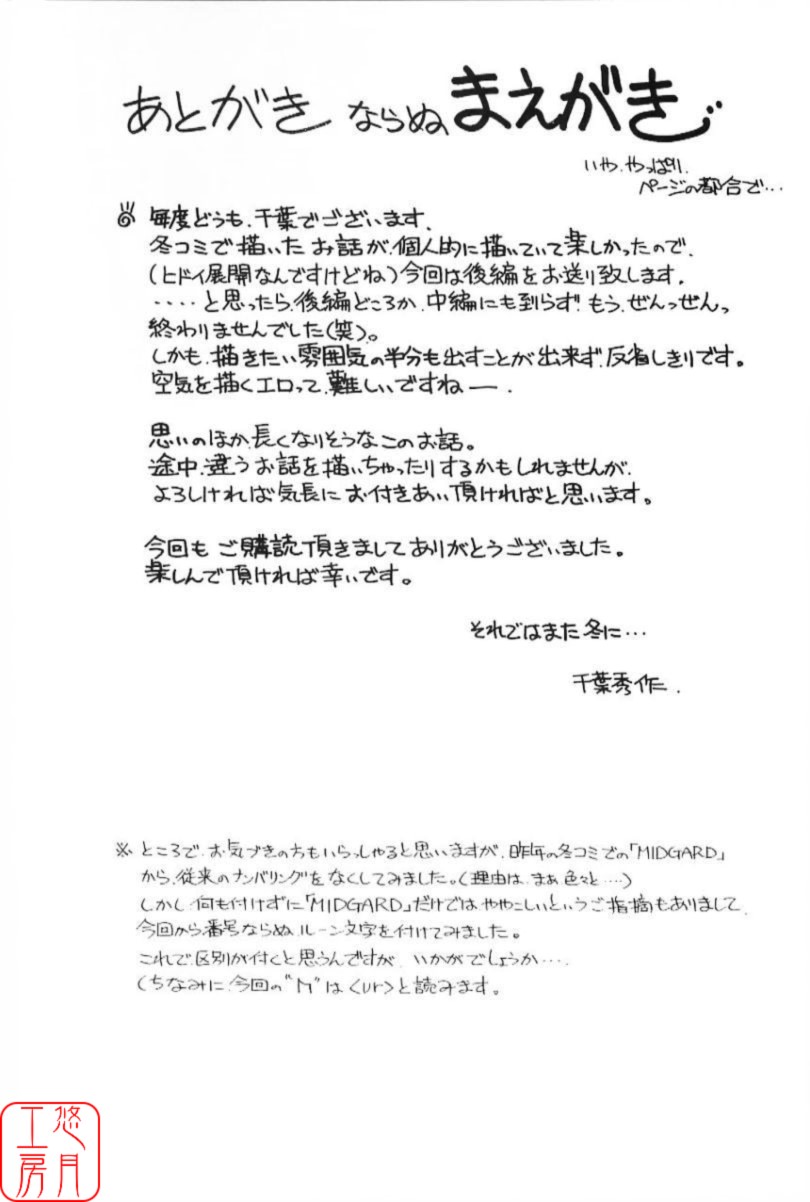 あとがき ならぬ、まえがき
いや、やっぱり、
ページの都合で…
毎度どうも、千葉でございます。
冬コミで描いたお話が、個人的に描いていて楽しかったので、
(ヒドイ展開なんですけどね)今回は後編をお送り致します。
‥‥と思ったら、後編どころか、中編にも到らず、もう、ぜんっぜんっ
終わりませんでした(笑)。
しかも、描きたい雰囲気の半分も出すことが出来ず、反省しきりです。
空気を描くエロって、難しいですねー。
思いのほか、長くなりそうなこのお話。
途中、違うお話を描いちゃったりするかもしれませんが、
よろしければ気長にお付きあい頂ければと思います。
今回もご購読頂きましてありがとうございました。
楽しんで頂ければ幸いです。
それではまた冬に…
千葉秀作.
※ ところで、お気づきの方もいらっしゃると思いますが、昨年の冬コミでの「MIDGARD」
から、従来のナンバリングをなくしてみました。(理由は、まぁ色々と‥‥)
しかし、何も付けずに「MIDGARD」だけではややこしいというご指摘もありまして、
今回から番号ならぬ、ルーン文字を付けてみました。
これで区別が付くと思うんですが、いかがでしょうか‥‥
(ちなみに、今回の"ᚢ"は<ur>と読みます。
悠月工房